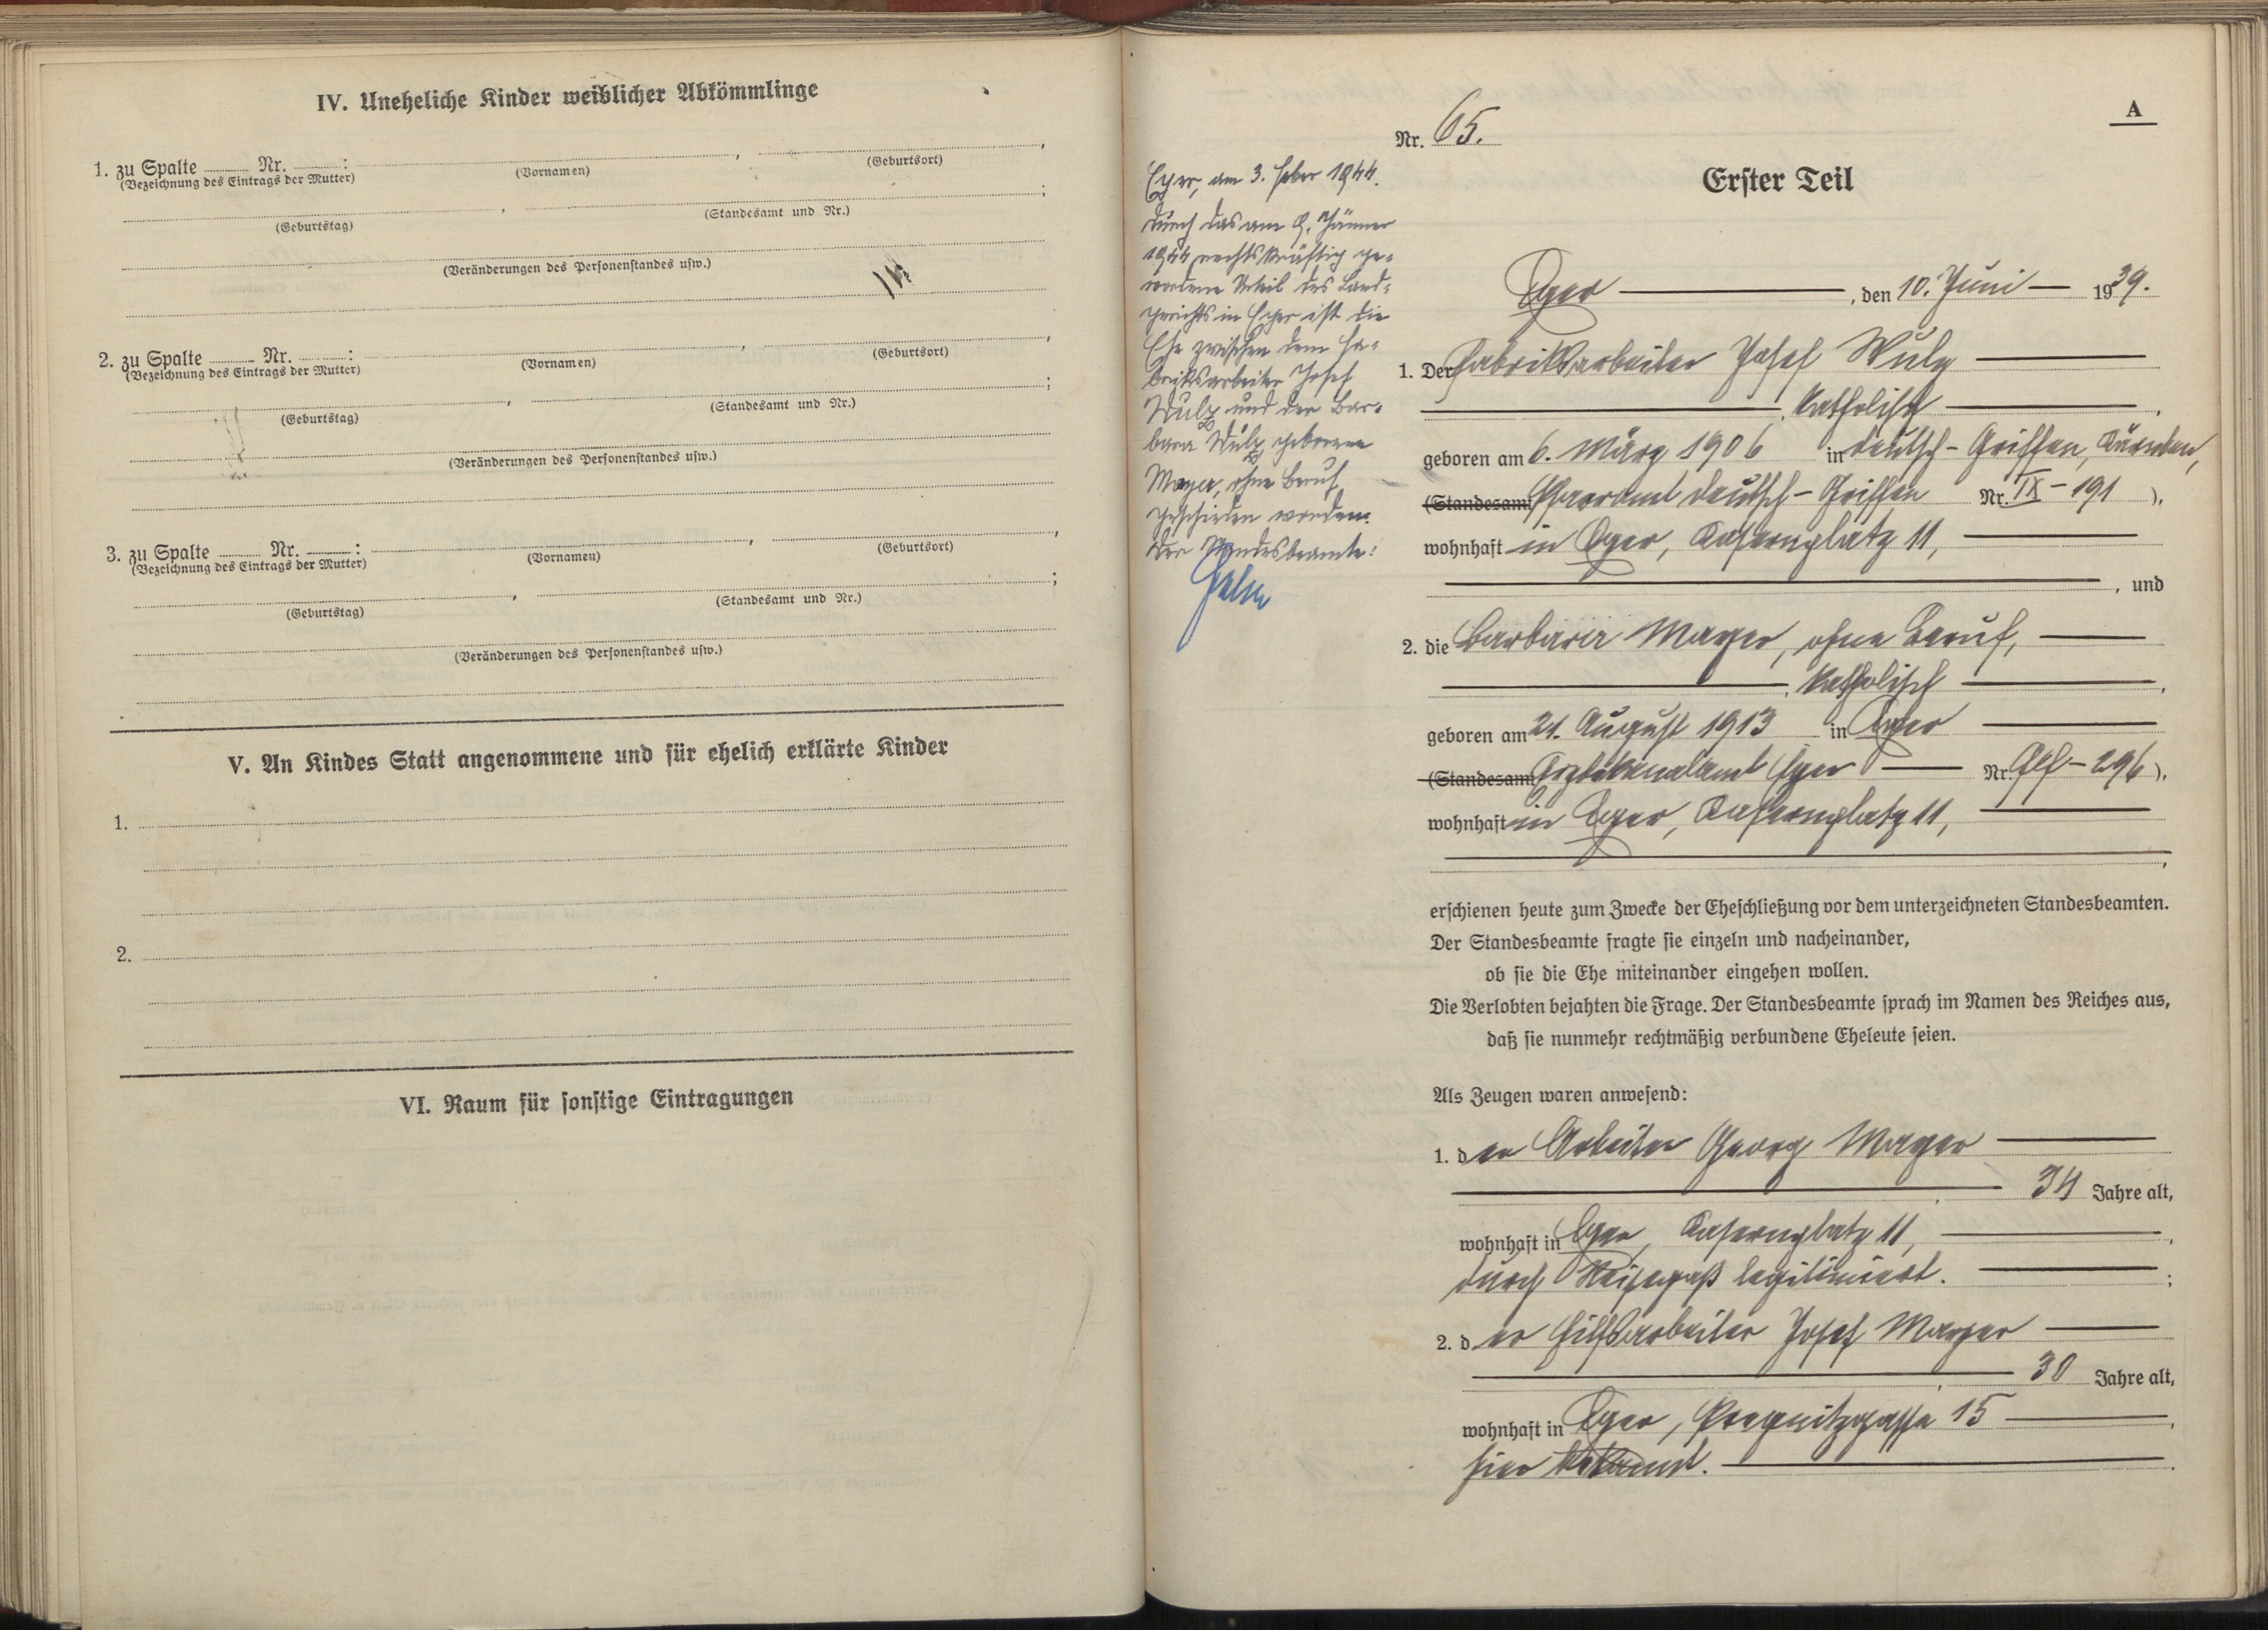 IV. Uneheliche Kinder weiblicher Abkömmlinge
1. zu Spalte ........ Nr. ........ :
(Bezeichnung des Eintrags der Mutter)
(Vornamen)
(Geburtsort)
(Geburtstag)
(Standesamt und Nr.)
(Veränderungen des Personenstandes usw.)
2. zu Spalte ........ Nr. ........ :
(Bezeichnung des Eintrags der Mutter)
(Vornamen)
(Geburtsort)
(Geburtstag)
(Standesamt und Nr.)
(Veränderungen des Personenstandes usw.)
3. zu Spalte ........ Nr. ........ :
(Bezeichnung des Eintrags der Mutter)
(Vornamen)
(Geburtsort)
(Geburtstag)
(Standesamt und Nr.)
(Veränderungen des Personenstandes usw.)
V. An Kindes Statt angenommene und für ehelich erklärte Kinder
1.
2.
VI. Raum für sonstige Eintragungen
A
Nr. 65.
Erster Teil
Eger, am 3. Feber 1944.
Durch das am 9. Jänner
1944 rechtskräftig ge-
wordene Urteil des Land-
gerichts in Eger ist die
Ehe zwischen dem Fa-
briksarbeiter Josef
Wulz und der Bar-
bara Wulz, geborene
Mayer, ohne Beruf,
geschieden worden.
Der Standesbeamte:
Eger, den 10. Juni 1939.
1. Der Fabriksarbeiter Josef Wulz
, katholisch ,
geboren am 6. März 1906 in Deutsch-Griffen, Kärnten,
(Standesamt Pfarramt Deutsch-Griffen Nr. IX-191 ),
wohnhaft in Eger, Kasernplatz 11,
, und
2. die Barbara Mayer, ohne Beruf,
, katholisch ,
geboren am 21. August 1913 in Eger
(Standesamt Erzdekanalamt Eger Nr. 296 ),
wohnhaft in Eger, Kasernplatz 11,
,
erschienen heute zum Zwecke der Eheschließung vor dem unterzeichneten Standesbeamten.
Der Standesbeamte fragte sie einzeln und nacheinander,
ob sie die Ehe miteinander eingehen wollen.
Die Verlobten bejahten die Frage. Der Standesbeamte sprach im Namen des Reiches aus,
daß sie nunmehr rechtmäßig verbundene Eheleute seien.
Als Zeugen waren anwesend:
1. der Arbeiter Georg Mayer
, 34 Jahre alt,
wohnhaft in Eger, Kasernplatz 11,
durch Reisepaß legitimiert. ;
2. der Hilfsarbeiter Josef Mayer
, 30 Jahre alt,
wohnhaft in Eger, Pregnitzgasse 15 ,
hier bekannt.